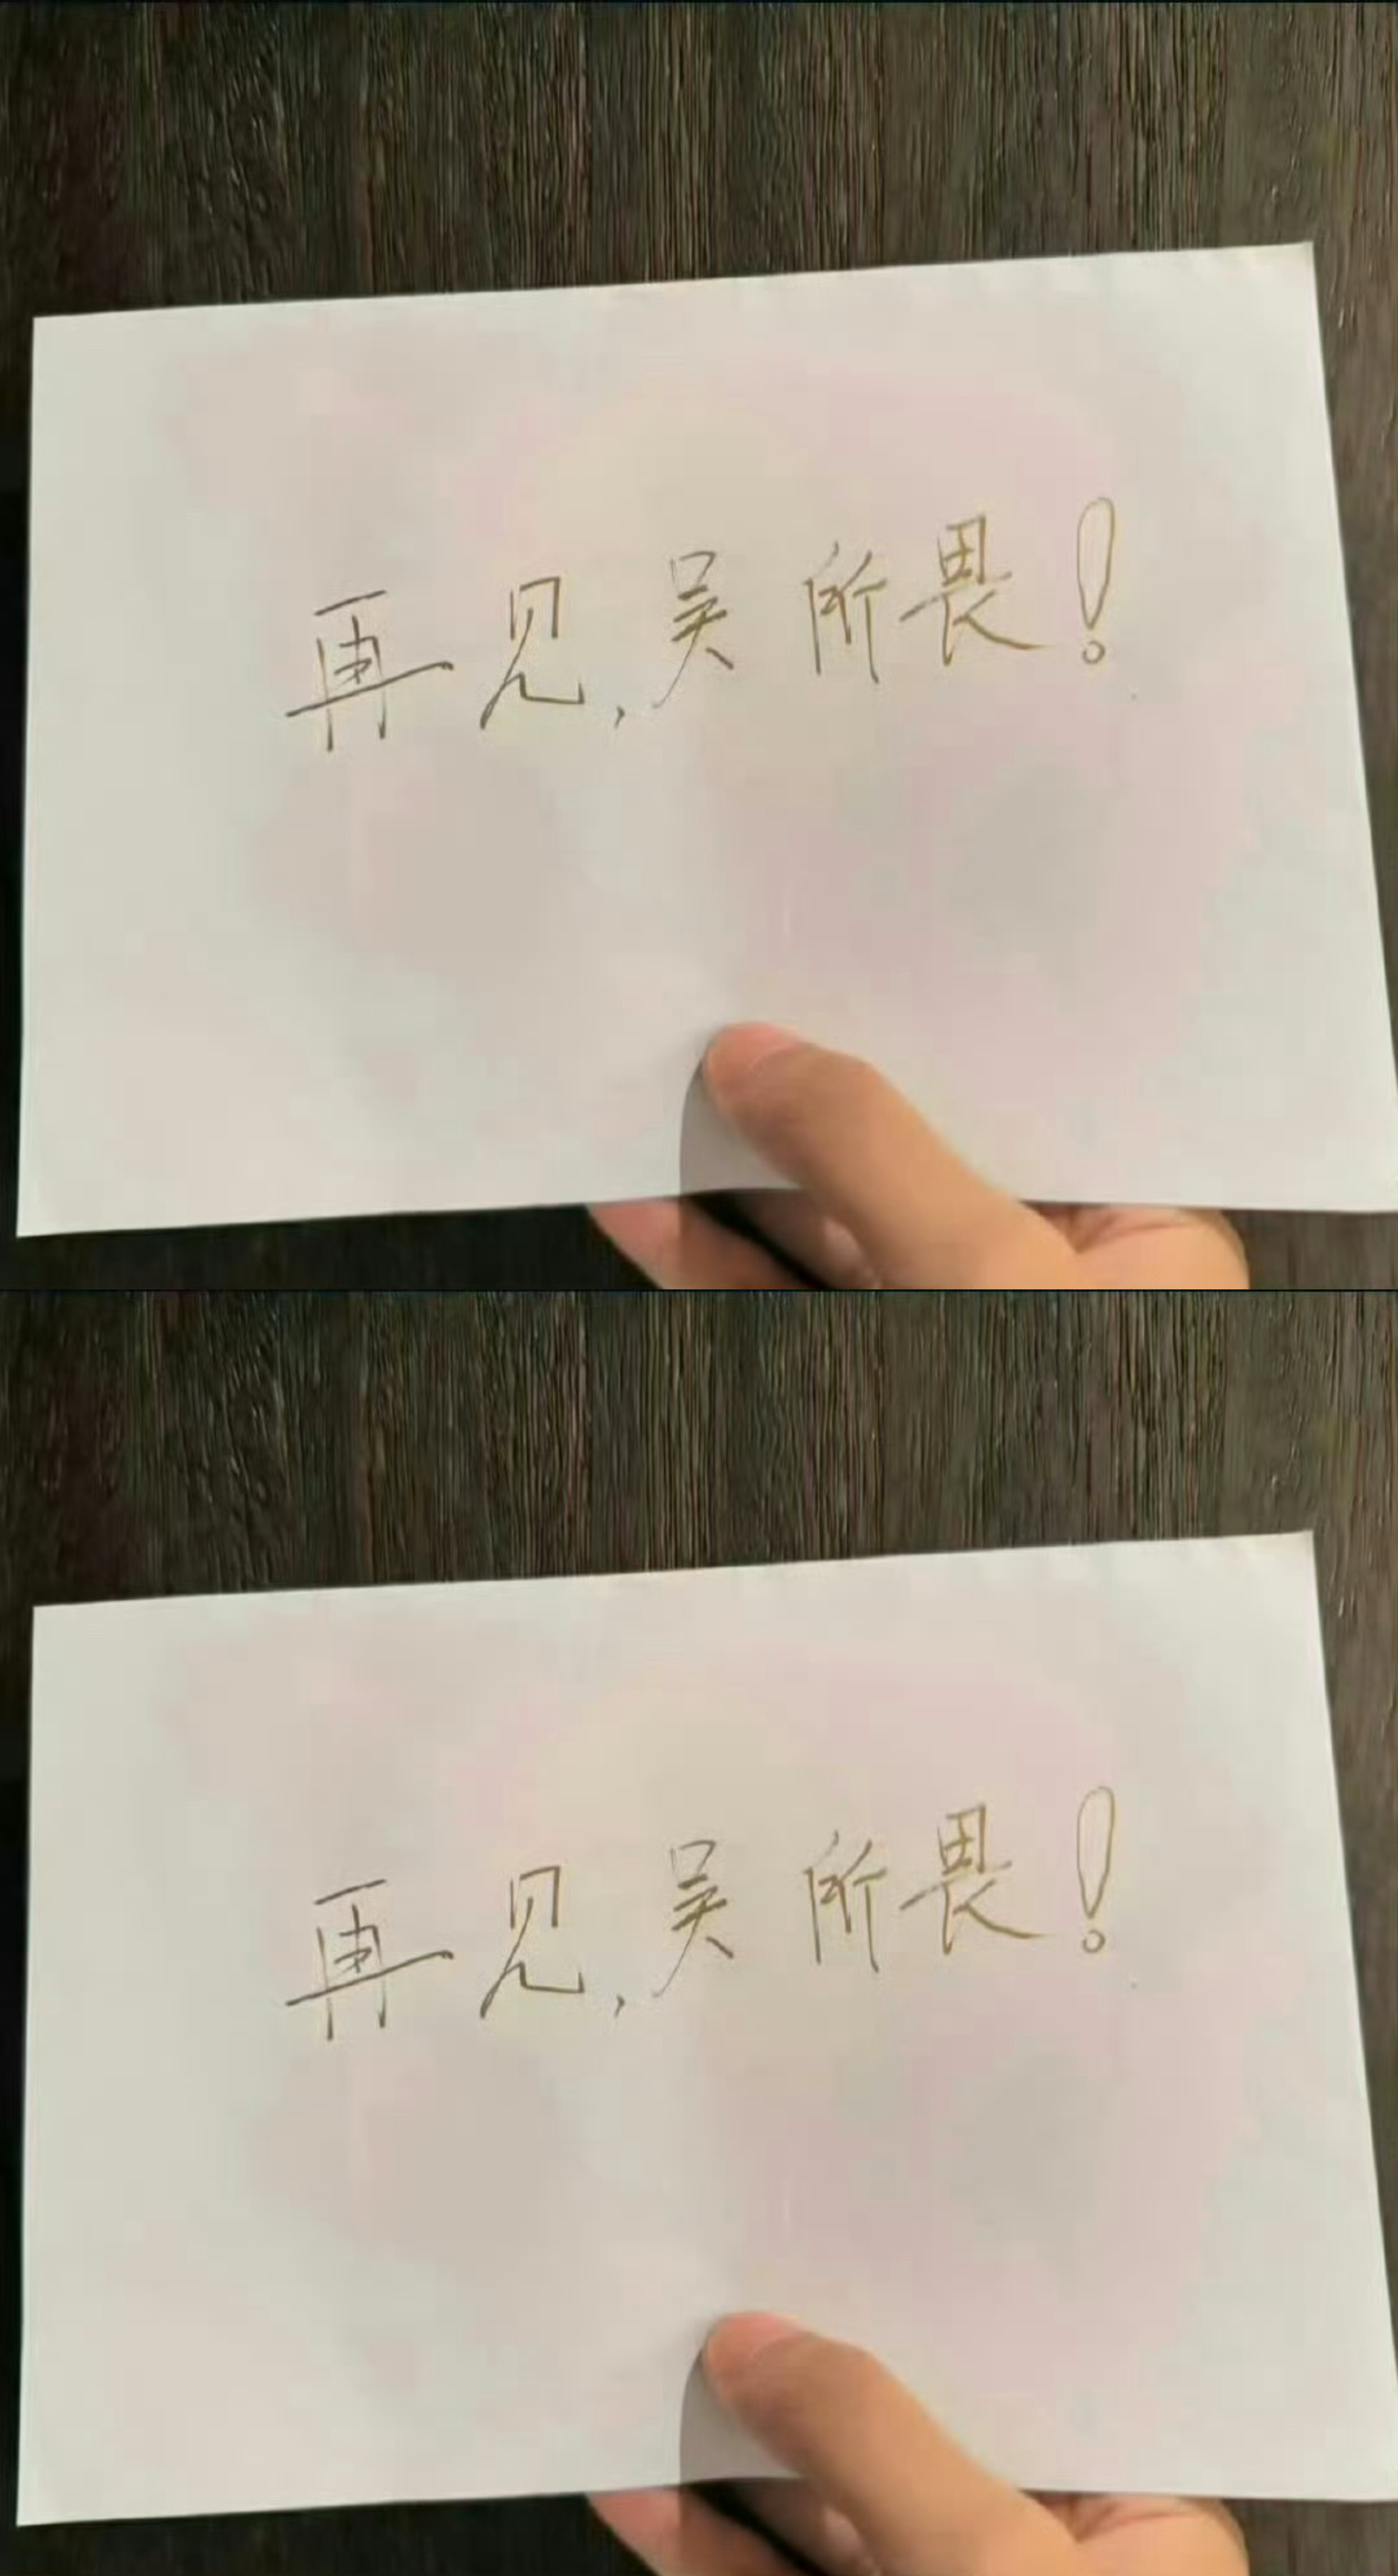 再见,吴所畏!
再见,吴所畏!